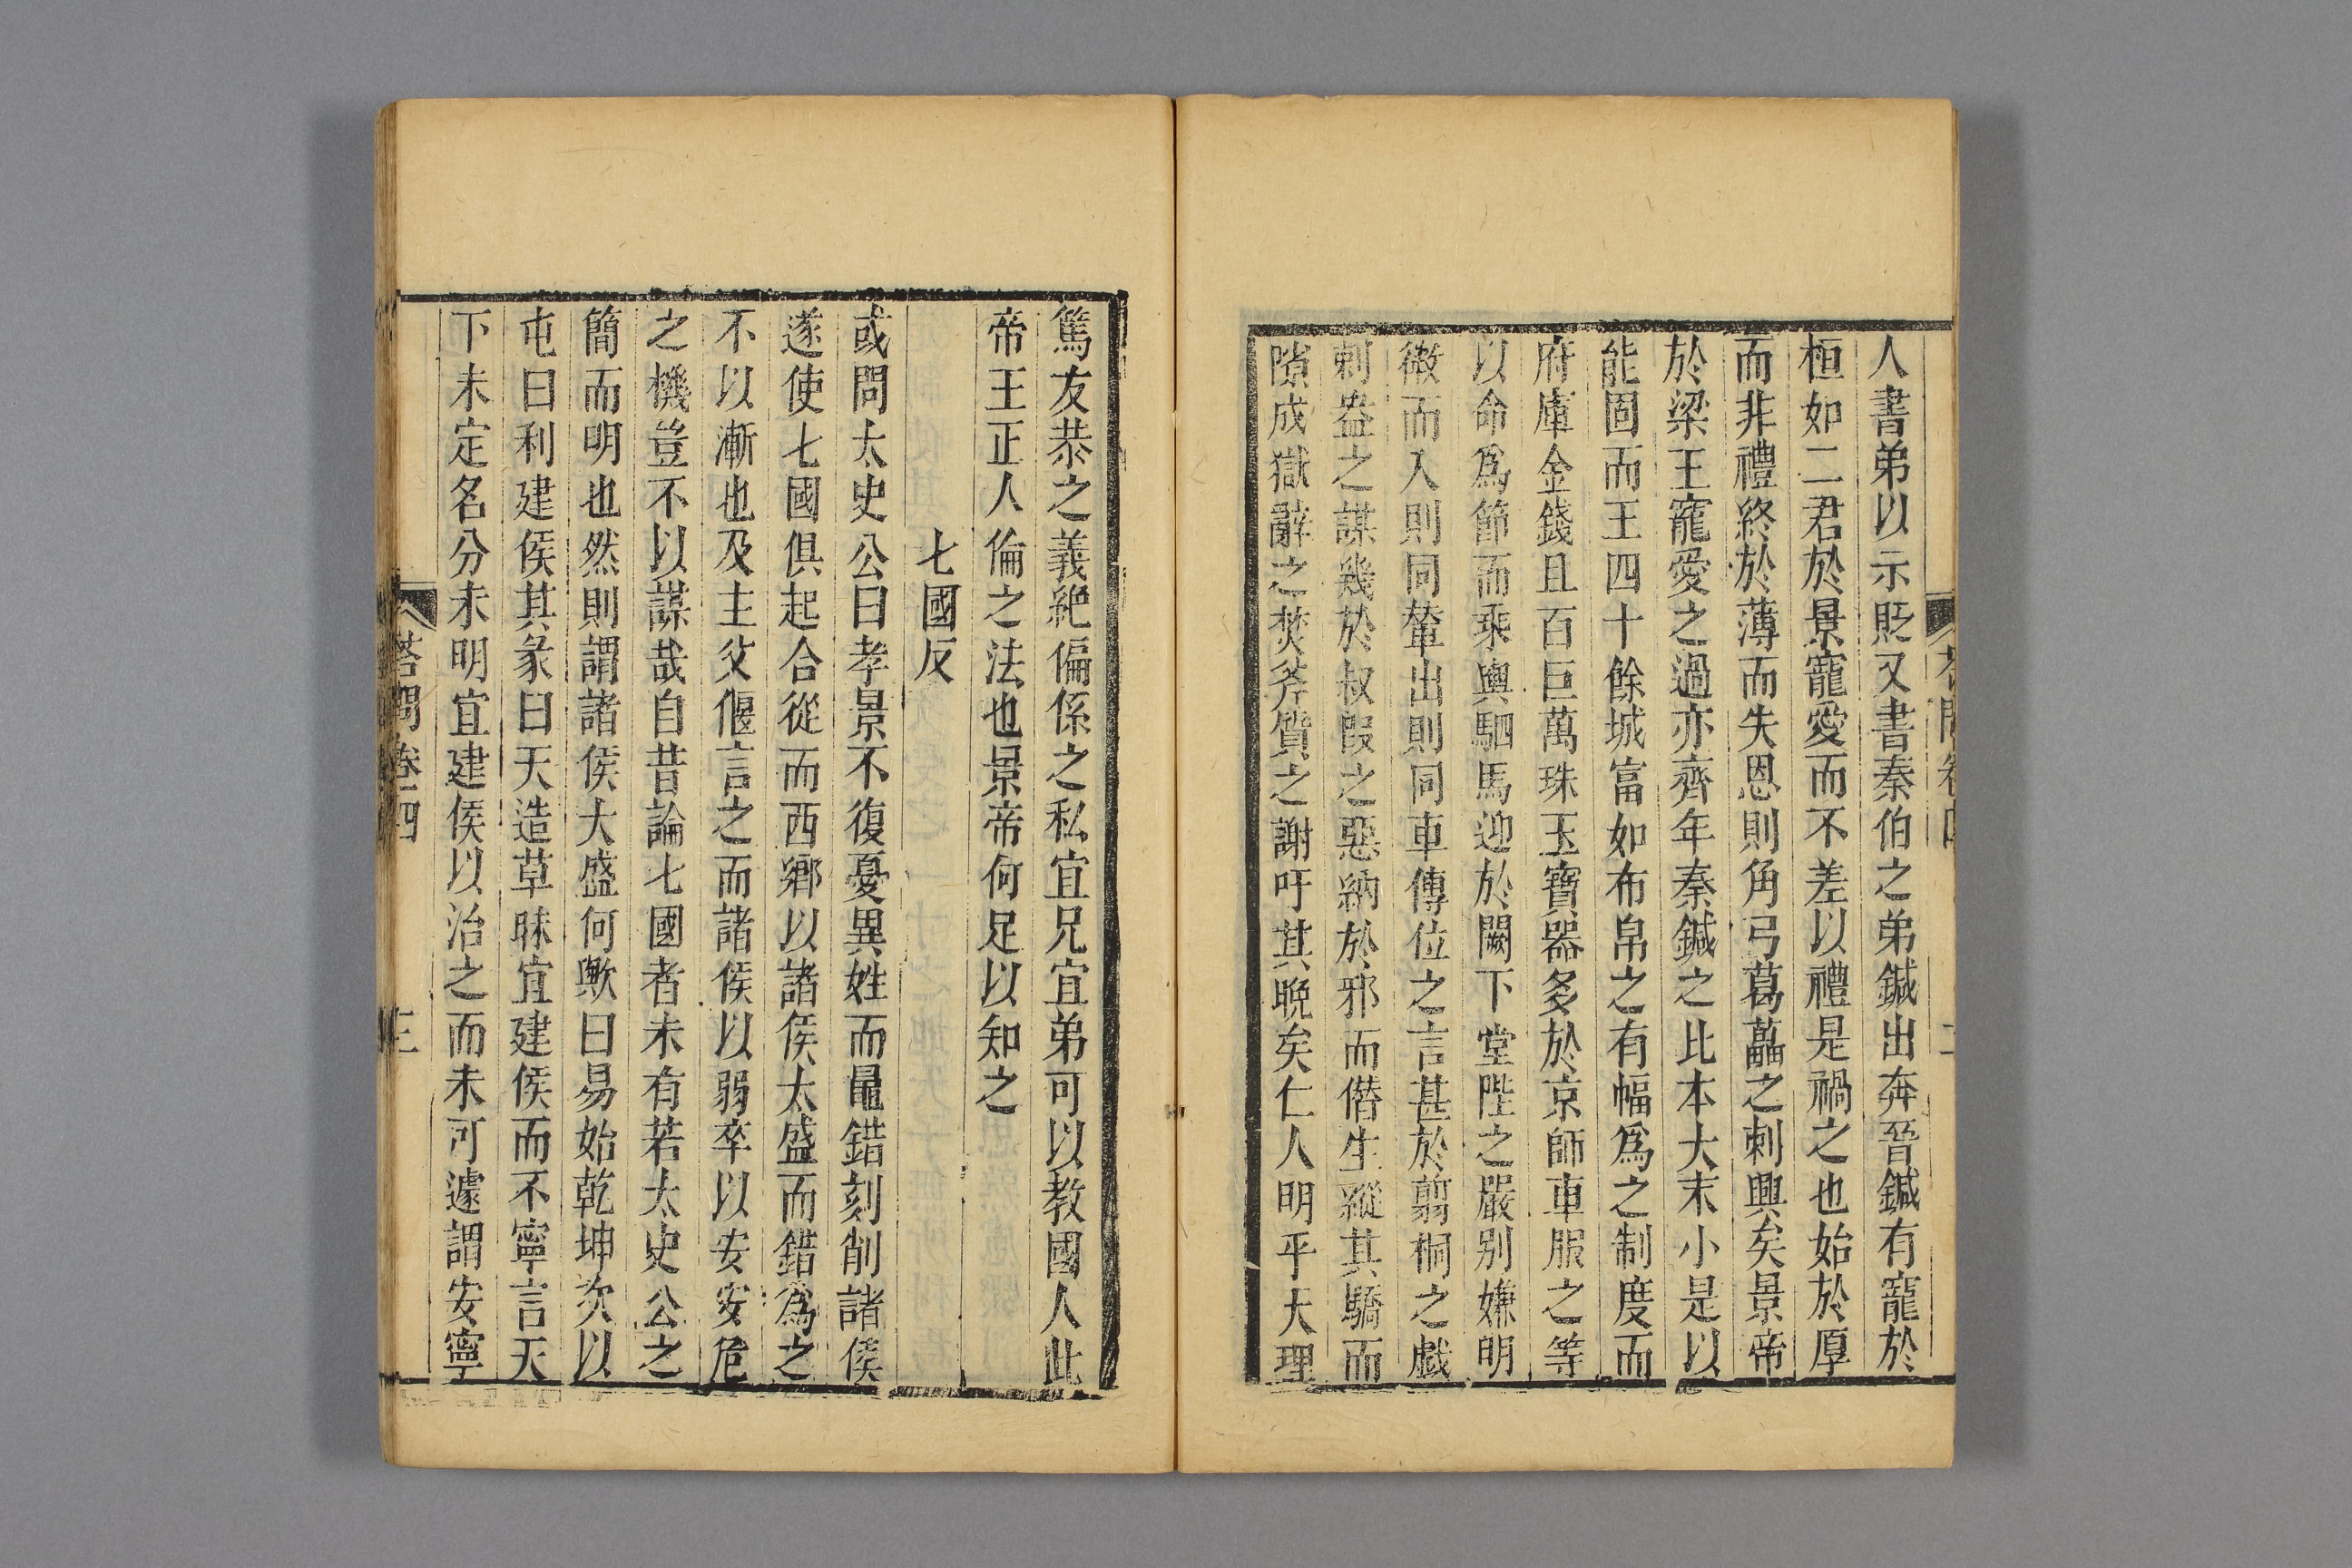 人書弟以示貶又書秦伯之弟鍼出奔晉鍼有寵於
桓如二君於景寵愛而不差以禮是禍之也始於厚
而非禮終於薄而失恩則角弓葛藟之刺興矣景帝
於梁王寵愛之過亦齊年秦鍼之比本大末小是以
能固而王四十餘城富如布帛之有幅爲之制度而
府庫金錢且百巨萬珠玉寶器多於京師車服之等
以命爲節而乘輿駟馬迎於闕下堂陛之嚴別嫌明
微而入則同輦出則同車傳位之言甚於翦桐之戲
刺盎之謀幾於叔段之惡納於邪而僭生縱其驕而
隙成獄辭之焚斧質之謝吁其晚矣仁人明乎大理
篤友恭之義絶偏係之私宜兄宜弟可以教國人此
帝王正人倫之法也景帝何足以知之
七國反
或問太史公曰孝景不復憂異姓而鼂錯刻削諸侯
遂使七國俱起合從而西鄉以諸侯太盛而錯爲之
不以漸也及主父偃言之而諸侯以弱卒以安安危
之機豈不以謀哉自昔論七國者未有若太史公之
簡而明也然則謂諸侯大盛何歟曰易始乾坤次以
屯曰利建侯其彖曰天造草昧宜建侯而不寧言天
下未定名分未明宜建侯以治之而未可遽謂安寧
答問卷四 三